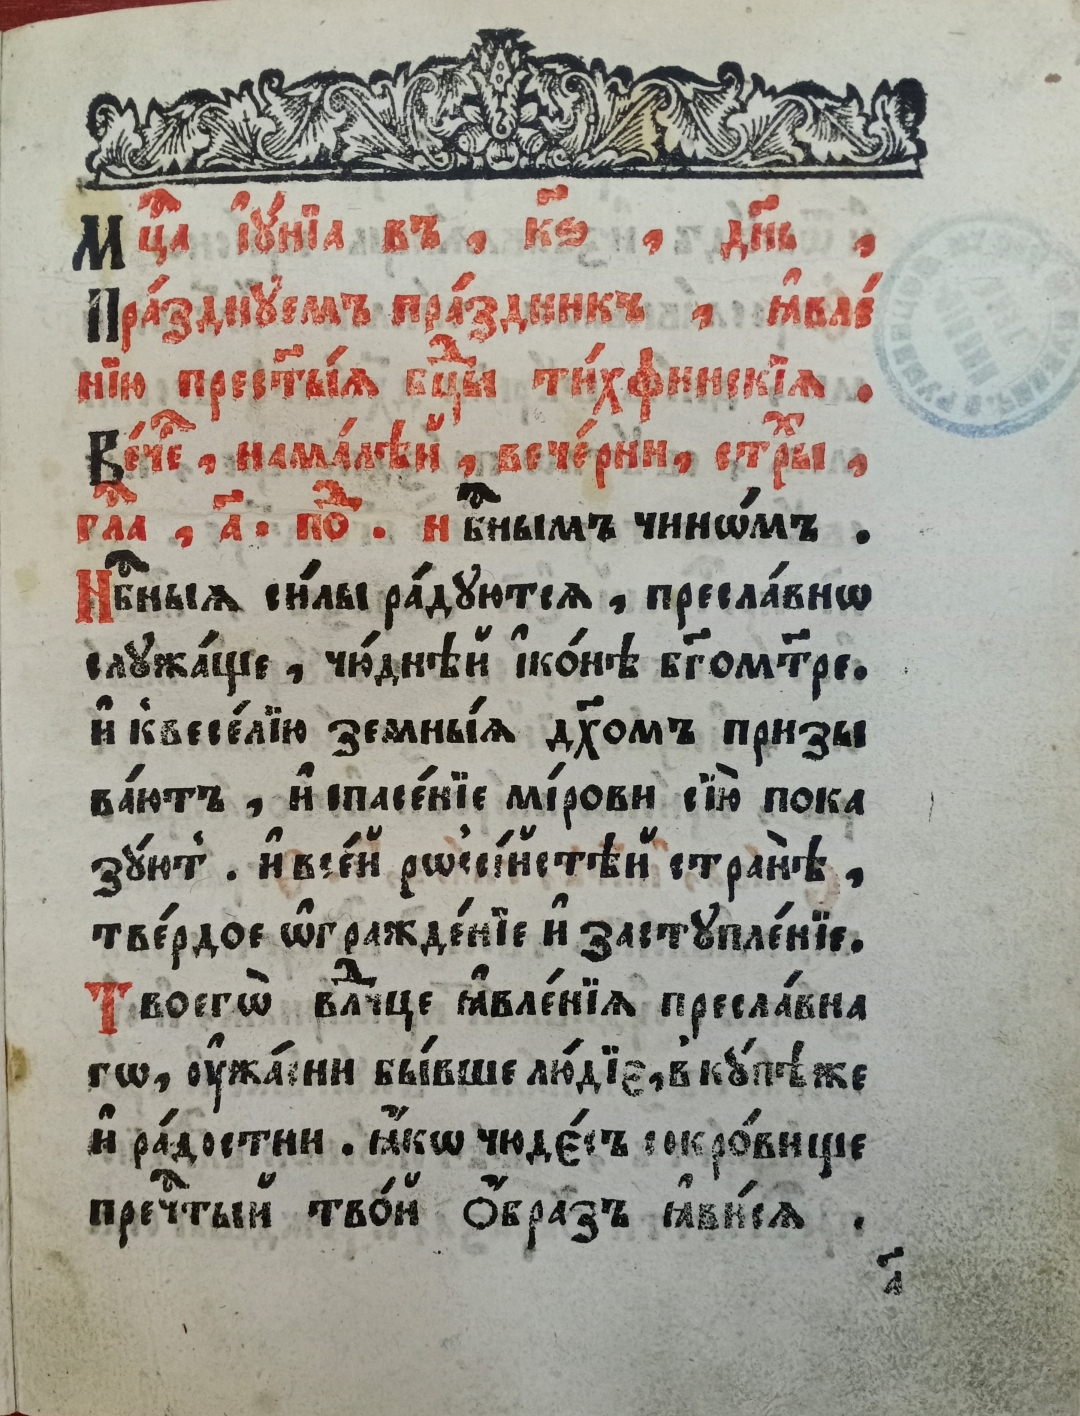 Мц҇а і҆ꙋ́нїа въ , к҃ѳ , дн҃ь ,
Пра́зднꙋемъ пра́здникъ , ꙗ҆вле́
нїю прест҃ы́ѧ бц҇ы ти́хфинскїѧ .
Ве́че҇ , нама́лѣй , вече́рни , стр҇ы ,
гл҇а , а҃ . по҇д . н бⷭ҇нымъ чинѡ́мъ .
Нбⷭ҇ныѧ си́лы ра́дꙋютсѧ , пресла́внѡ
слꙋжа́ще , чю́днѣй і҆ко́нѣ бг҃омт҃ре.
и҆ к̾весе́лїю земны́ѧ дх҃омъ призы
ва́ютъ , и҆ спасе́нїе мі́рови сїю̀ пока
зꙋ́ют̾ . и҆ все́й рѡсі́йстѣй странѣ̀ ,
тве́рдое ѡ҆гражде́нїе и҆ застꙋпле́нїе.
Твоегѡ̀ влⷣчце ꙗ҆вле́нїѧ пресла́вна
гѡ, ᲂу҆жа́сни бы́вше лю́дїе, вкꙋ́пѣже
и҆ ра́достни . ꙗ҆́кѡ чюде́съ сокро́вище
пречⷭ҇тый тво́й ѻ҆́бразъ ꙗ҆ви́сѧ .
а҃